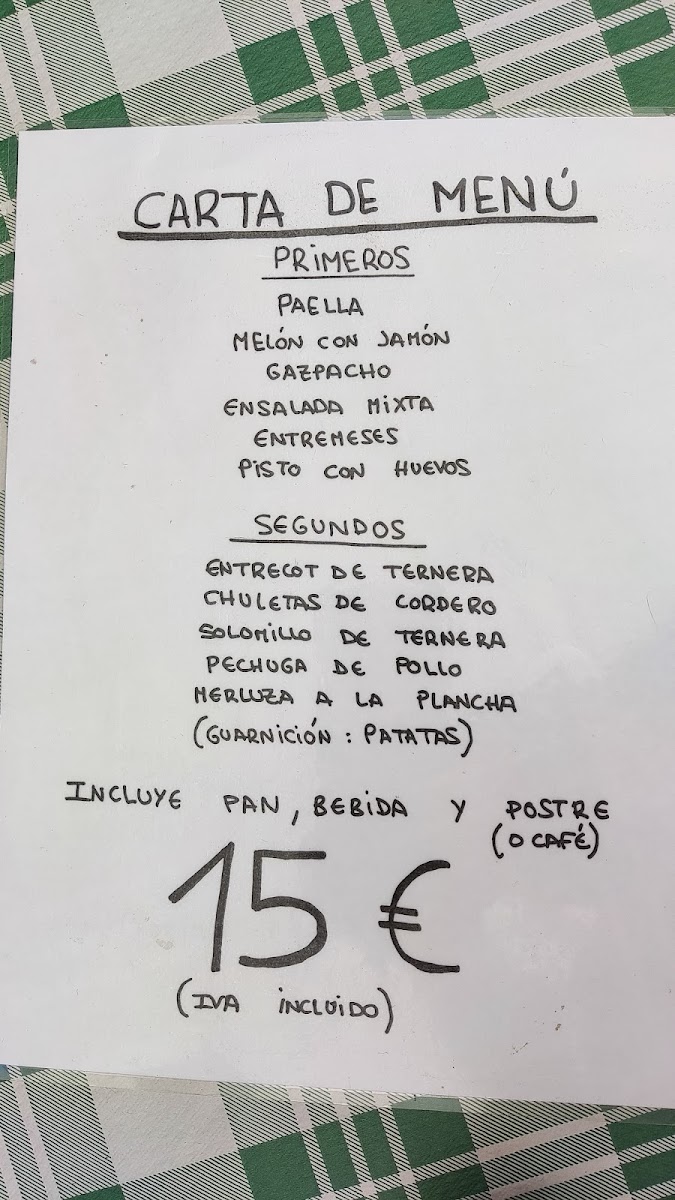 CARTA DE MENÚ
PRIMEROS
PAELLA
MELÓN CON JAMÓN
GAZPACHO
ENSALADA MIXTA
ENTREMESES
PISTO CON HUEVOS
SEGUNDOS
ENTRECOT DE TERNERA
CHULETAS DE CORDERO
SOLOMILLO DE TERNERA
PECHUGA DE POLLO
MERLUZA A LA PLANCHA
(GUARNICIÓN : PATATAS)
INCLUYE PAN, BEBIDA Y POSTRE
(O CAFÉ)
15 €
(IVA INCLUIDO)